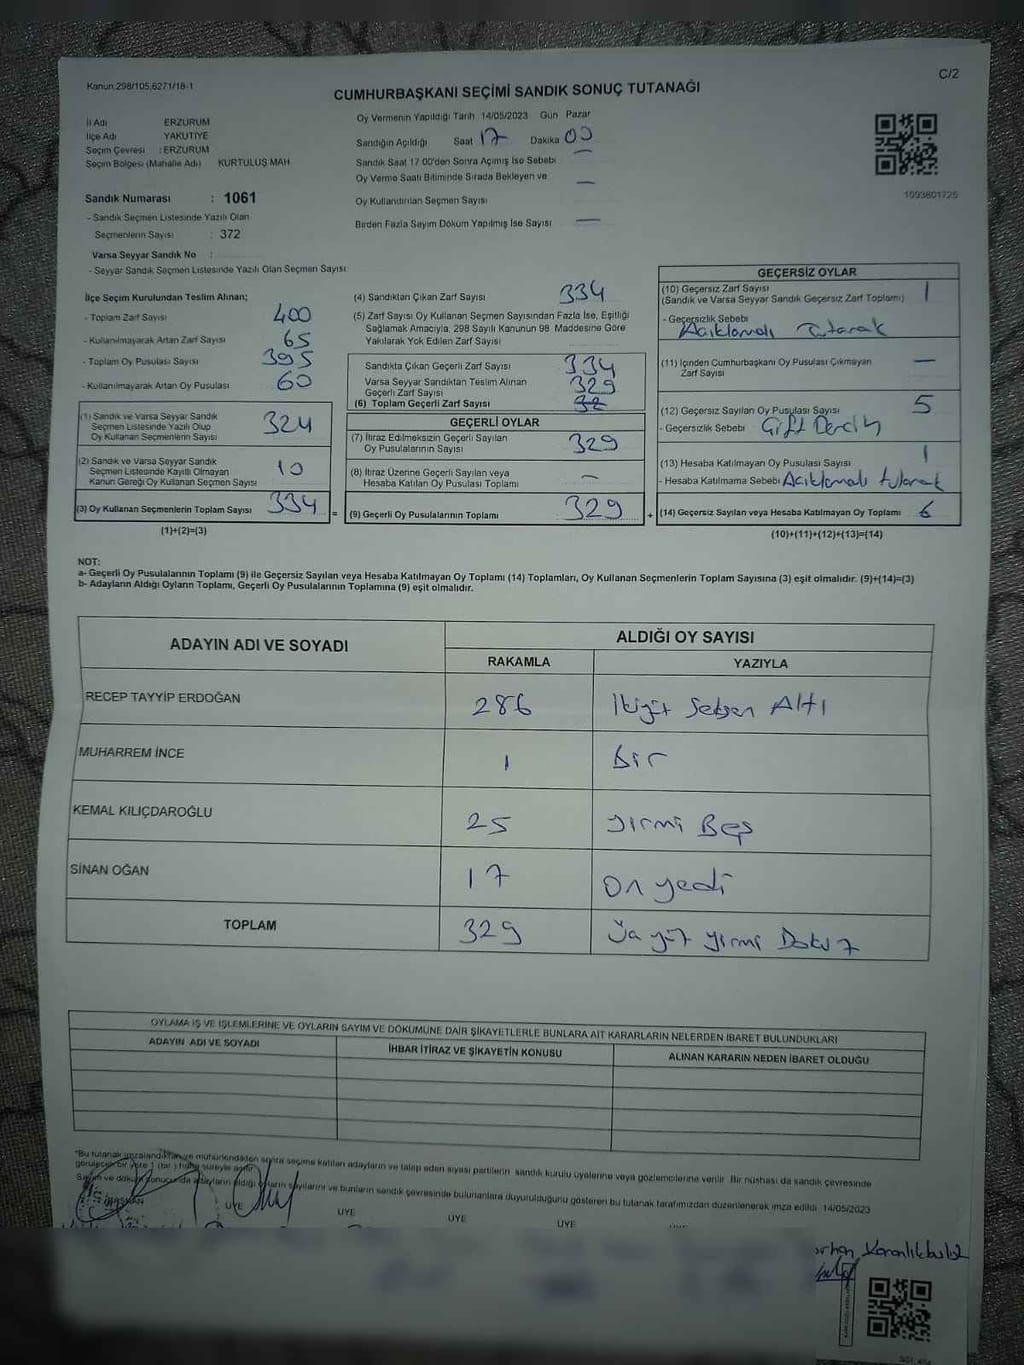 Kanun:298/105,6271/18-1
C/2
CUMHURBAŞKANI SEÇİMİ SANDIK SONUÇ TUTANAĞI
İl Adı ERZURUM
İlçe Adı YAKUTİYE
Seçim Çevresi : ERZURUM
Seçim Bölgesi (Mahalle Adı) KURTULUŞ MAH
Oy Vermenin Yapıldığı Tarih 14/05/2023 Gün Pazar
Sandığın Açıldığı Saat 17 Dakika 00
Sandık Saat 17.00'den Sonra Açımış İse Sebebi —
Oy Verme Saati Bitiminde Sırada Bekleyen ve
Oy Kullandırılan Seçmen Sayısı —
Birden Fazla Sayım Döküm Yapılmış İse Sayısı —
1093801725
Sandık Numarası : 1061
- Sandık Seçmen Listesinde Yazılı Olan
Seçmenlerin Sayısı : 372
Varsa Seyyar Sandık No :
- Seyyar Sandık Seçmen Listesinde Yazılı Olan Seçmen Sayısı
İlçe Seçim Kurulundan Teslim Alınan;
- Toplam Zarf Sayısı 400
- Kullanılmayarak Artan Zarf Sayısı 65
- Toplam Oy Pusulası Sayısı 395
- Kullanılmayarak Artan Oy Pusulası 60
(1) Sandık ve Varsa Seyyar Sandık
Seçmen Listesinde Yazılı Olup
Oy Kullanan Seçmenlerin Sayısı 324
(2) Sandık ve Varsa Seyyar Sandık
Seçmen Listesinde Kayıtlı Olmayan
Kanun Gereği Oy Kullanan Seçmen Sayısı 10
(3) Oy Kullanan Seçmenlerin Toplam Sayısı 334
(1)+(2)=(3)
(4) Sandıktan Çıkan Zarf Sayısı 334
(5) Zarf Sayısı Oy Kullanan Seçmen Sayısından Fazla İse, Eşitliği
Sağlamak Amacıyla, 298 Sayılı Kanunun 98. Maddesine Göre
Yakılarak Yok Edilen Zarf Sayısı
Sandıkta Çıkan Geçerli Zarf Sayısı 334
Varsa Seyyar Sandıktan Teslim Alınan
Geçerli Zarf Sayısı 329
(6) Toplam Geçerli Zarf Sayısı
GEÇERLİ OYLAR
(7) İtiraz Edilmeksizin Geçerli Sayılan
Oy Pusulalarının Sayısı 329
(8) İtiraz Üzerine Geçerli Sayılan veya
Hesaba Katılan Oy Pusulası Toplamı —
= (9) Geçerli Oy Pusulalarının Toplamı 329
GEÇERSİZ OYLAR
(10) Geçersiz Zarf Sayısı 1
(Sandık ve Varsa Seyyar Sandık Geçersiz Zarf Toplamı)
- Geçersizlik Sebebi
Açıklamalı Tutanak
(11) İçinden Cumhurbaşkanı Oy Pusulası Çıkmayan —
Zarf Sayısı
(12) Geçersiz Sayılan Oy Pusulası Sayısı 5
- Geçersizlik Sebebi
(13) Hesaba Katılmayan Oy Pusulası Sayısı 1
- Hesaba Katılmama Sebebi Açıklamalı tutanak
+ (14) Geçersiz Sayılan veya Hesaba Katılmayan Oy Toplamı 6
(10)+(11)+(12)+(13)=(14)
NOT:
a- Geçerli Oy Pusulalarının Toplamı (9) ile Geçersiz Sayılan veya Hesaba Katılmayan Oy Toplamı (14) Toplamları, Oy Kullanan Seçmenlerin Toplam Sayısına (3) eşit olmalıdır. (9)+(14)=(3)
b- Adayların Aldığı Oyların Toplamı, Geçerli Oy Pusulalarının Toplamına (9) eşit olmalıdır.
ADAYIN ADI VE SOYADI
ALDIĞI OY SAYISI
RAKAMLA YAZIYLA
RECEP TAYYİP ERDOĞAN 286 İkiyüz Seksen Altı
MUHARREM İNCE 1 Bir
KEMAL KILIÇDAROĞLU 25 yirmi Beş
SİNAN OĞAN 17 On yedi
TOPLAM 329 Üç yüz yirmi Dokuz
OYLAMA İŞ VE İŞLEMLERİNE VE OYLARIN SAYIM VE DÖKÜMÜNE DAİR ŞİKAYETLERLE BUNLARA AİT KARARLARIN NELERDEN İBARET BULUNDUKLARI
ADAYIN ADI VE SOYADI
İHBAR İTİRAZ VE ŞİKAYETİN KONUSU
ALINAN KARARIN NEDEN İBARET OLDUĞU
*Bu tutanak imzalandıktan ve mühürlendikten sonra seçime katılan adayların ve talep eden siyasi partilerin sandık kurulu üyelerine veya gözlemcilerine verilir. Bir nüshası da sandık çevresinde
görülecek bir yere 1 (bir) hafta süreyle asılır.
Sayım ve döküm sonucunda adayların aldığı oyların sayılarını ve bunların sandık çevresinde bulunanlara duyurulduğunu gösteren bu tutanak tarafımızdan düzenlenerek imza edildi. 14/05/2023
BAŞKAN ÜYE ÜYE ÜYE ÜYE
Karanlıkbulut